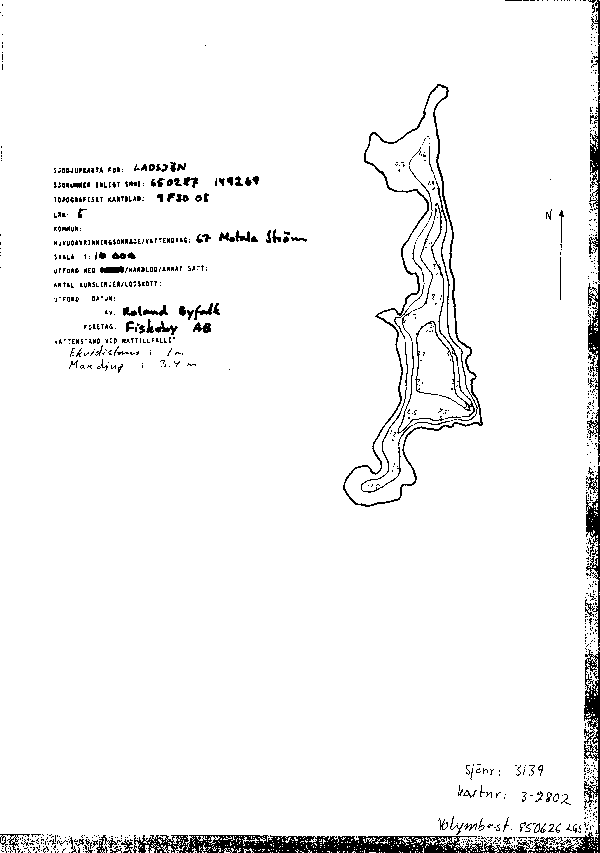 SJÖDJUPKARTA FÖR: LADSJÖN
SJÖNUMMER ENLIGT SMHI: 650287 149269
TOPOGRAFISKT KARTBLAD: 9F3D 05
LÄN: E
KOMMUN:
HUVUDAVRINNINGSOMRÅDE/VATTENDRAG: 67 Motala Ström
SKALA 1: 10 000
UTFÖRD MED /HANDLOD/ANNAT SÄTT:
ANTAL KURSLINJER/LODSKOTT:
UTFÖRD DATUM:
AV: Roland Byfalk
FÖRETAG: Fiskeby AB
VATTENSTÅND VID MÄTTILLFÄLLE
Ekvidistans : 1 m
Maxdjup : 3.4 m
N
Sjönr: 3139
Kartnr: 3-2802
Volymbest. 850626